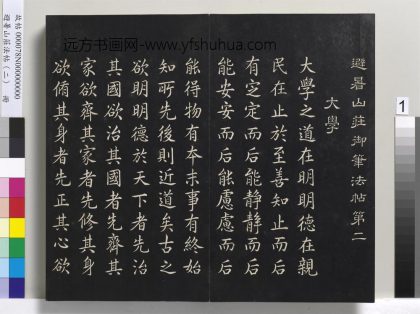 避暑山莊御筆法帖第二
大學
大學之道在明明德在親
民在止於至善知止而后
有定定而后能靜靜而后
能安安而后能慮慮而后
能得物有本末事有終始
知所先後則近道矣古之
欲明明德於天下者先治
其國欲治其國者先齊其
家欲齊其家者先修其身
欲脩其身者先正其心欲
远方书画网-www.yfshuhua.com
故帖 000078N00000000
避暑山莊法帖(二) 冊
1